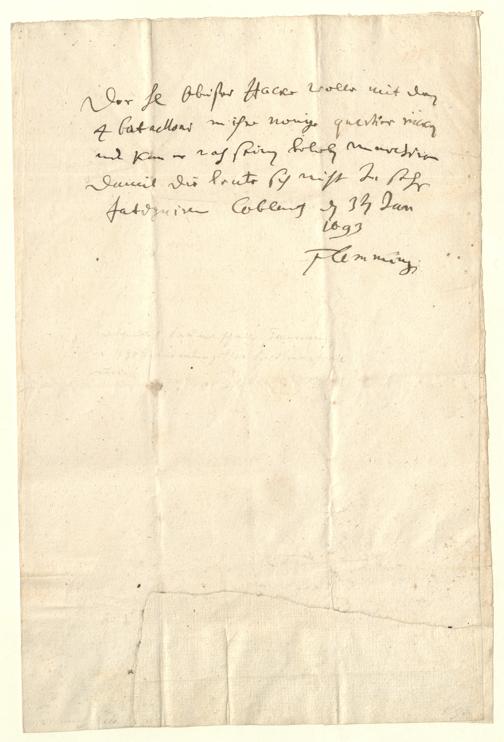 Der H Obister Hacke wolle mit den
4 batallons in ihre vorige quartier rücken
und kan er nach seinem belieb marchiren
damit die leute sich nicht zu sehr
fatiguiren Coblentz d 3 Jan
1693
Flemming